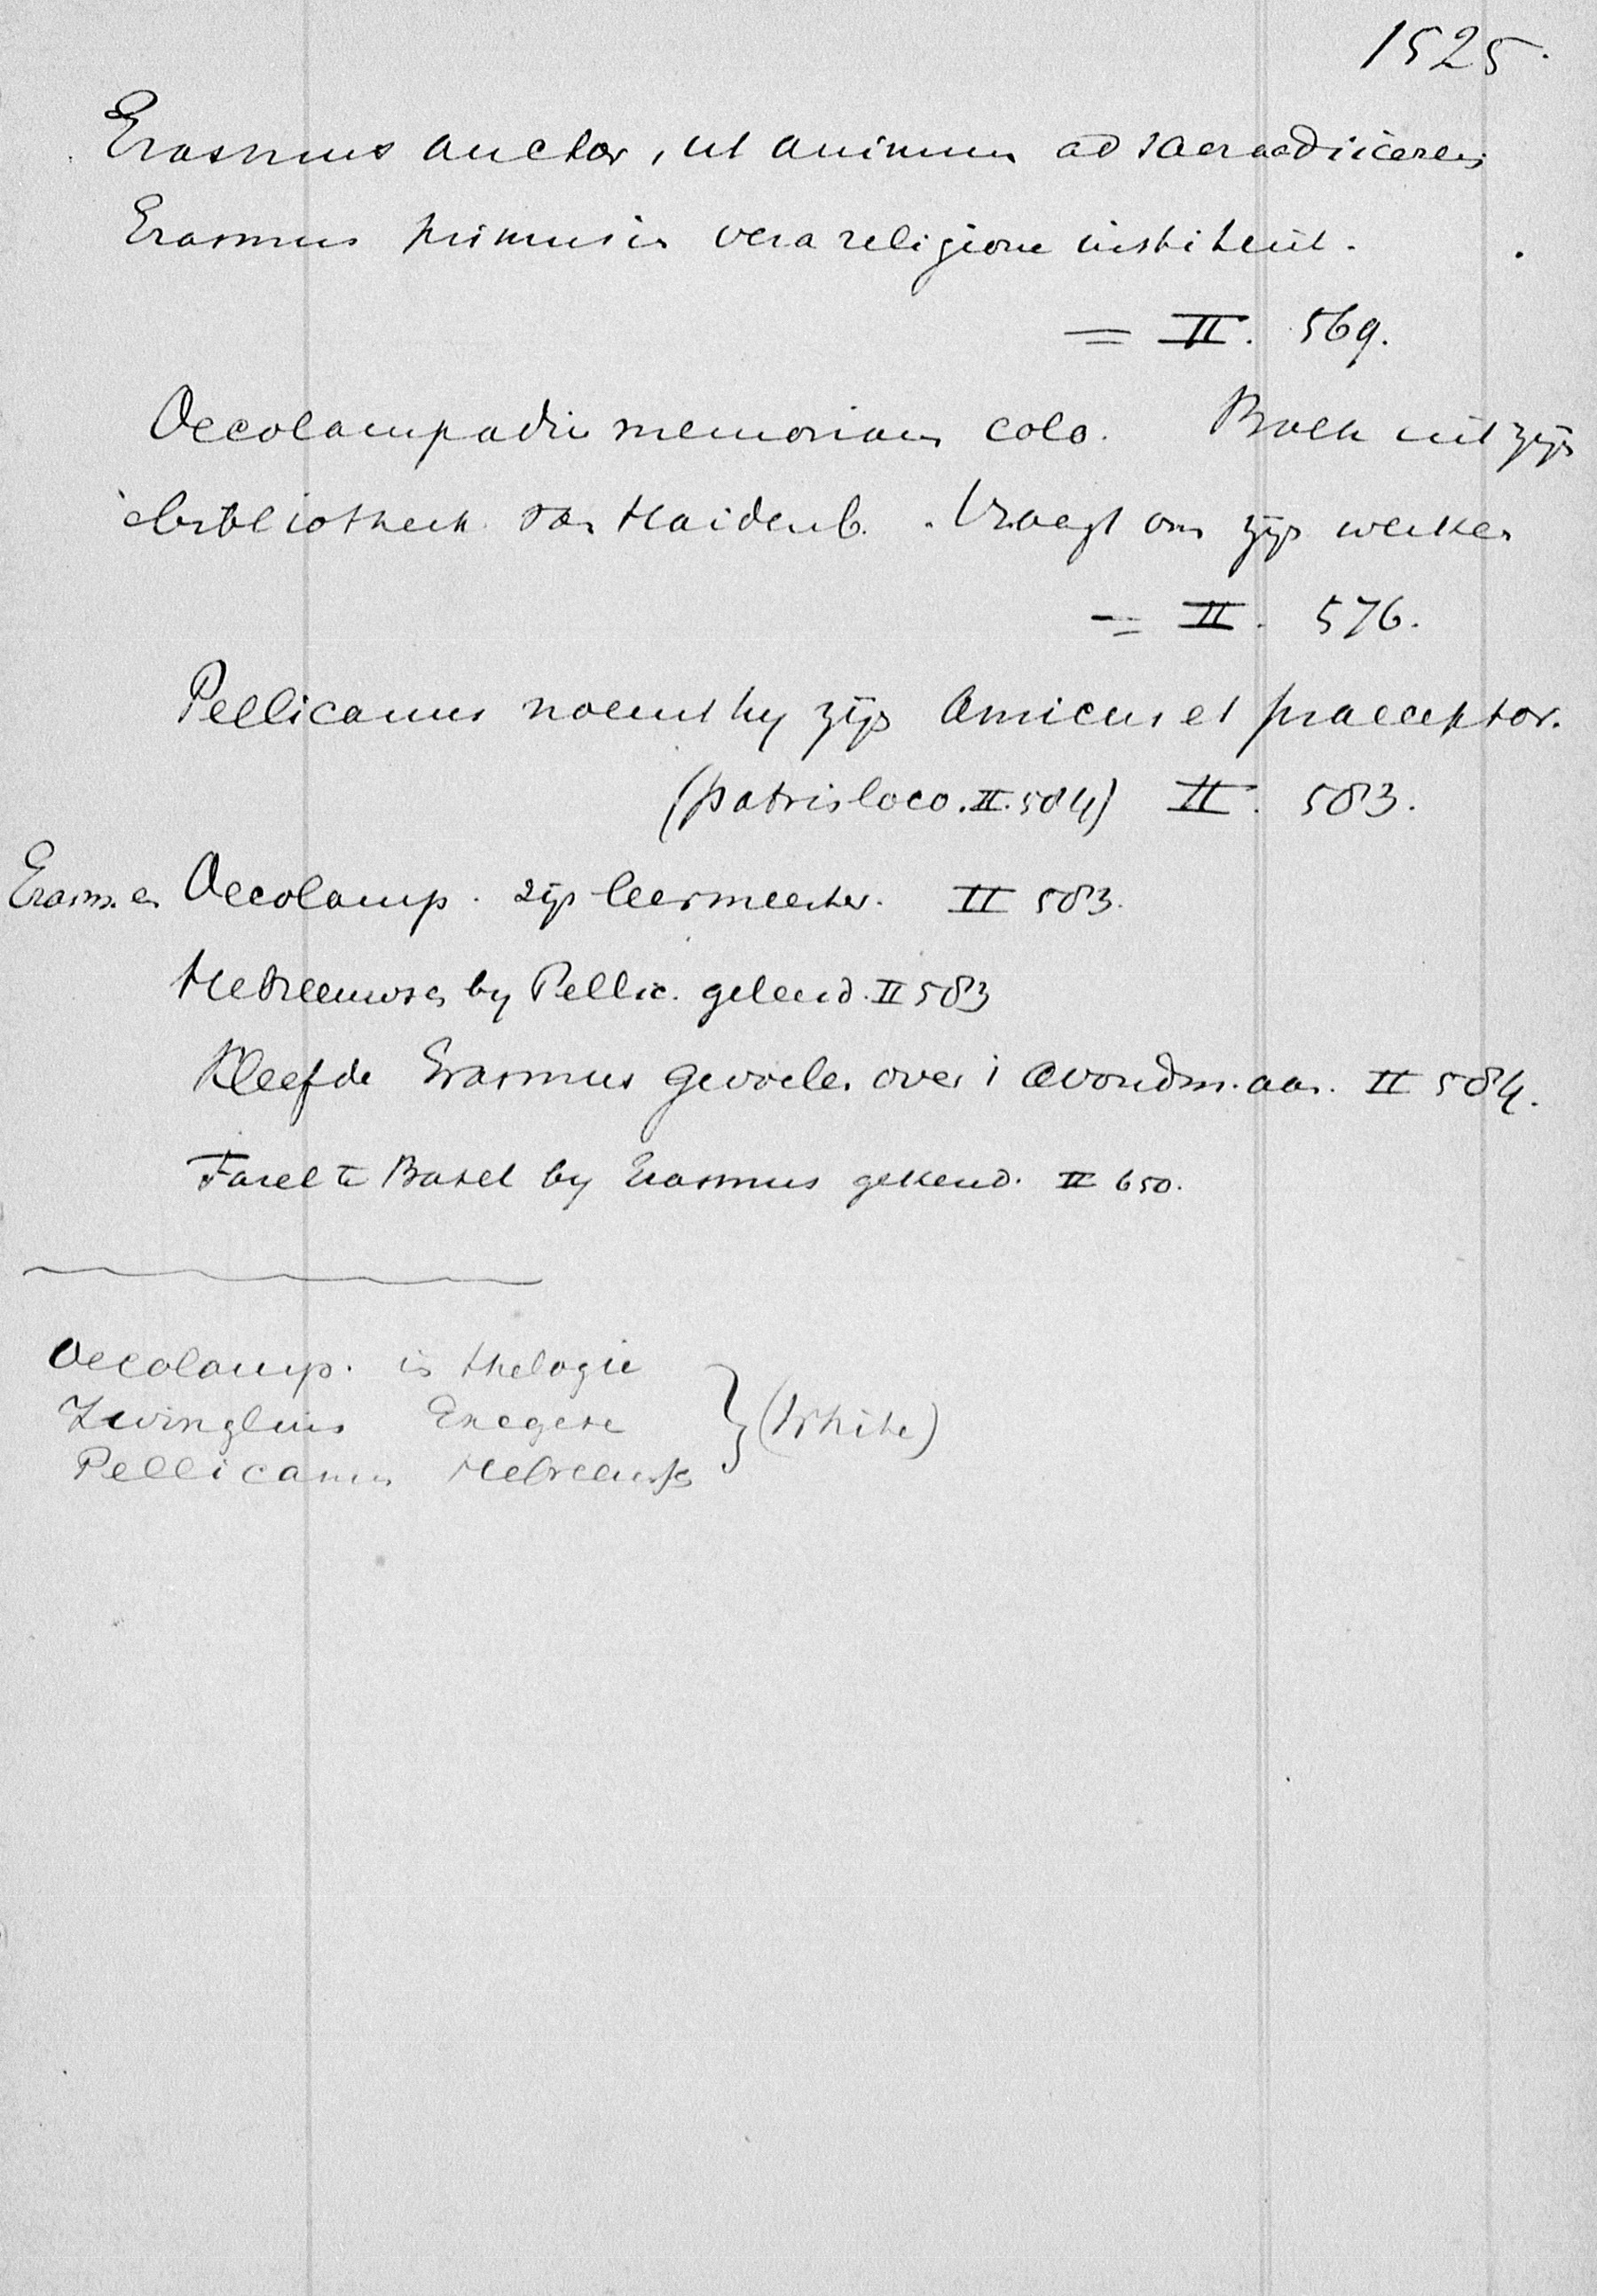 1525.
Erasmus auctor, ut animum ad sacra adiicerem
Erasmus primus in vera religione instituit.
= II. 569.
Oecolampadii memoriam colo. Boek uit zijn
bibliotheek van Haidenb. Vraagt om zijn werken
= II. 576.
Pellicanus noemt hy zijn Amicus et praeceptor.
(patris loco. II. 584) II. 583.
Erasm. en Oecolamp. zijn leermeester. II 583.
Hebreeuwsch by Pellic. geleerd. II 583
Kleefde Erasmus gevoelen over 't avondm. aan. II 584.
Farel te Basel by Erasmus gekend. II 650.
Oecolamp. in thelogie
Zwinglius Exegese
Pellicanus Hebreeuwsch
} (White)